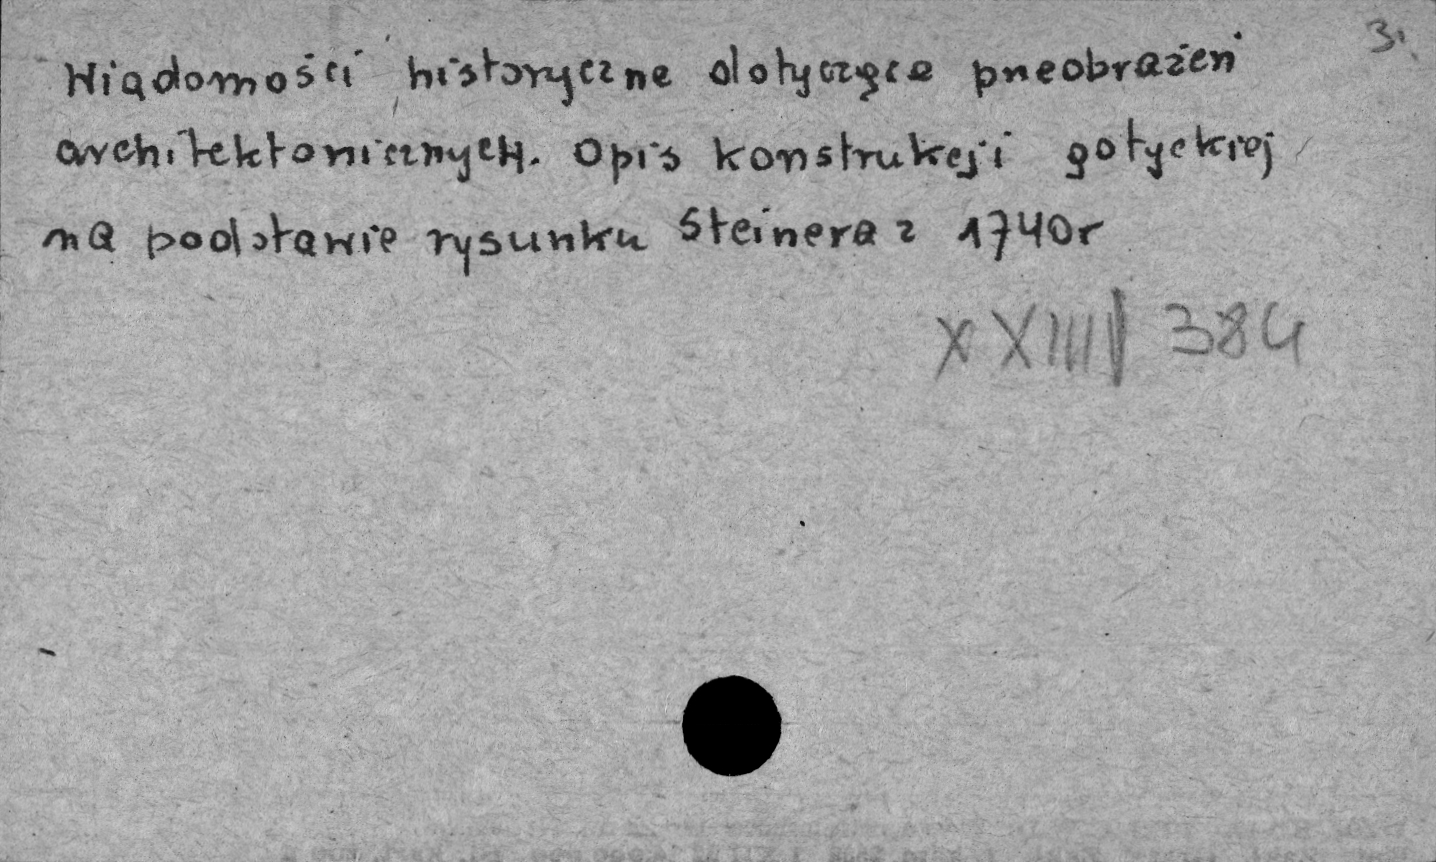 3.
Wiadomości historyczne dotyczące przeobrażeń
architektonicznych. Opis konstrukcji gotyckiej
na podstawie rysunku Steinera z 1740r
XXIIII 384